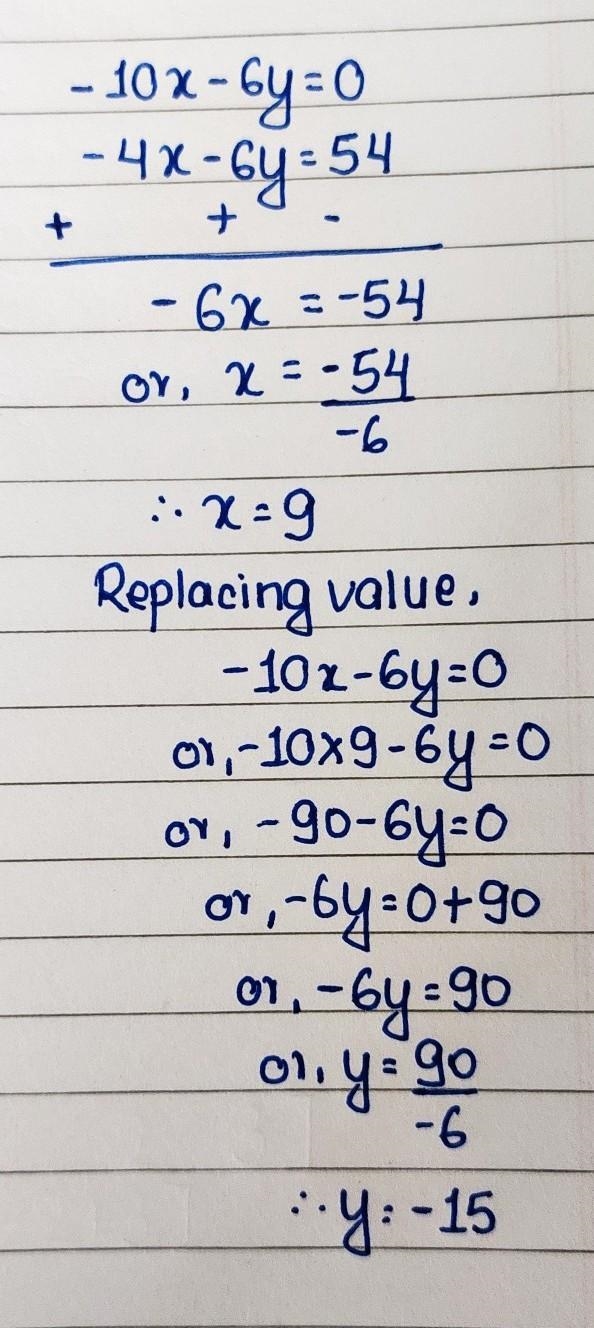 -10x-6y=0
-4x-6y=54
+ + -
-6x = -54
or, x = -54
-6
∴ x=9
Replacing value,
-10x-6y=0
or,-10x9-6y=0
or, -90-6y=0
or,-6y=0+90
or, -6y=90
or, y= 90
-6
∴ y= -15